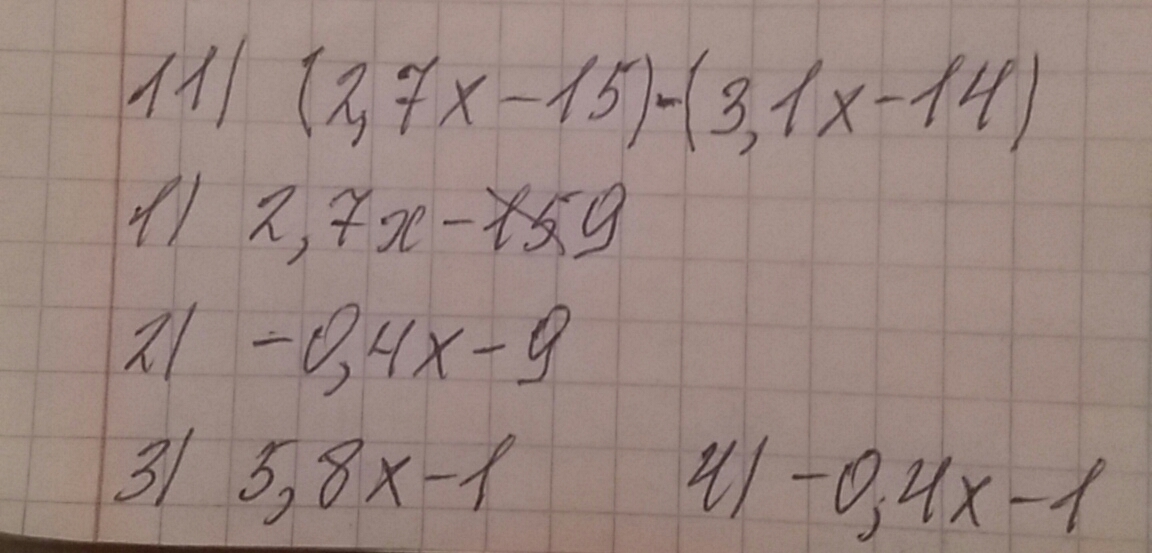 11) (2,7x-15)-(3,1x-14)
1) 2,7x-9
2) -0,4x-9
3) 5,8x-1 4) -0,4x-1